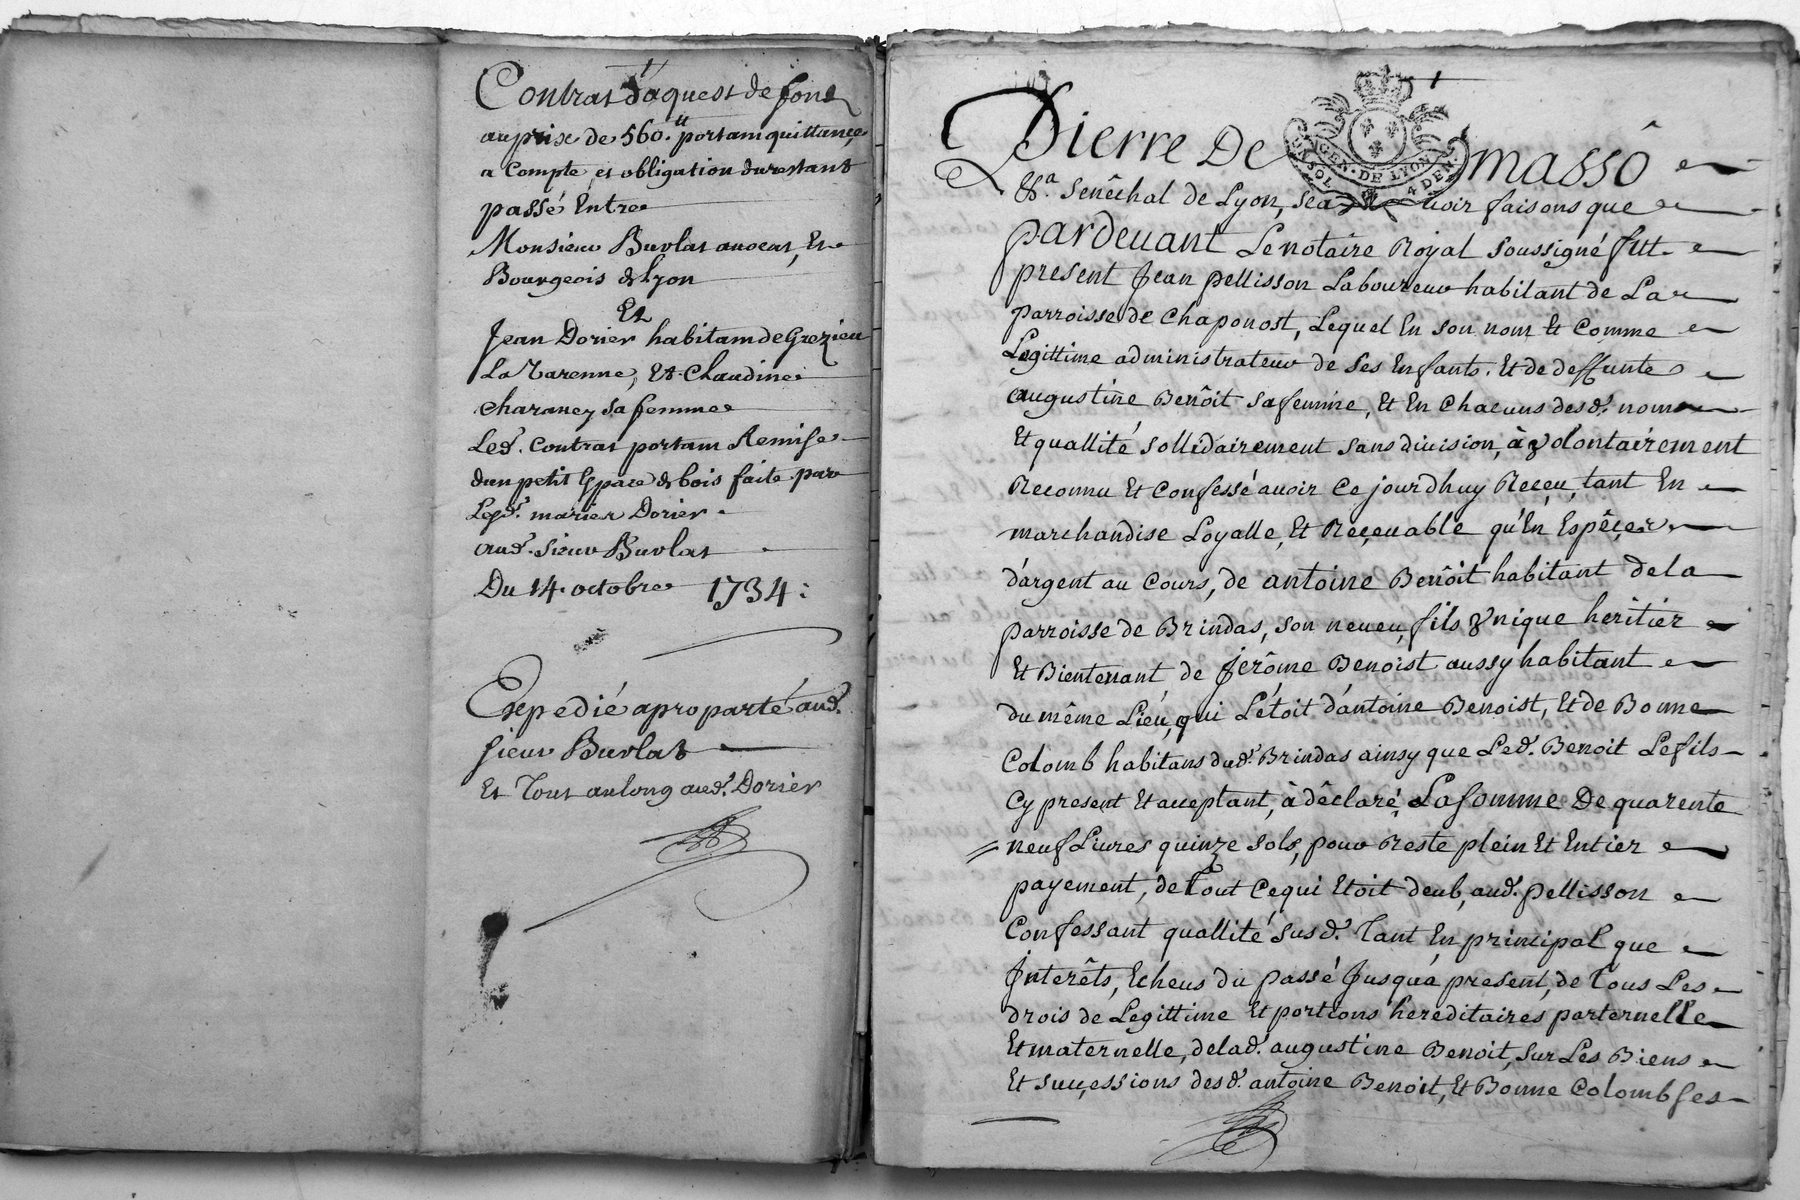 Contrat d'aquest de fond
au prix de 560.ᵗᵗ portant quittance
a Compte, et obligation du restant
passé Entre
Monsieur Burlat avocat, Et
Bourgeois de Lyon
Et
Jean Dorier habitant de Grezieu
La Varenne, Et Claudine
charancy sa femme
Led. Contrat portant Remise
d'un petit Espace de bois faite par
Lesd. mariez Dorier
aud. Sieur Burlat
Du 14 octobre 1734 :
Expedié aproparté aud.
sieur Burlat
Et Tout au long aud. Dorier
Pierre De masso
GEN. DE LYON
UN SOL 4 DEN.
Senêchal de Lyon, Sca voir faisons que
pardevant Le notaire Royal soussigné fut
present Jean pellisson Laboureur habitant de La
parroisse de chaponost, Lequel En son nom Et Comme
Legittime administrateur de ses Enfants. Et de deffunte
augustine Benôit sa femme, Et En chacuns desd. noms
Et quallité sollidairement sans division, à volontairement
Reconnu Et Confessé avoir Ce jourdhuy Reçeu, tant En
marchandise Loyalle, Et Reçevable qu'En Espêçes
d'argent au Cours, de antoine Benôit habitant de la
parroisse de Brindas, son neveu, fils vnique heritier
Et Bientenant de Jerôme Benoist aussy habitant
du même Lieu, qui L'étoit d'antoine Benoist, Et de Bonne
Colomb habitans dud. Brindas ainsy que Led. Benoit Le fils
Cy present Et acceptant, à dêclaré, La somme De quarente
neuf Livres quinze sols, pour Reste plein Et Entier
payement, de Tout Ce qui Etoit deub, aud. pellisson
Confessant quallité susd. Tant En principal que
Jnterêts, Echeus du passé Jusqu'à present, de Tous Les
drois de Legittime Et portions hereditaires parternelle
Et maternelle, de lad. augustine Benoit, sur Les Biens
Et suuçessions desd. antoine Benoit, Et Bonne Colomb ses